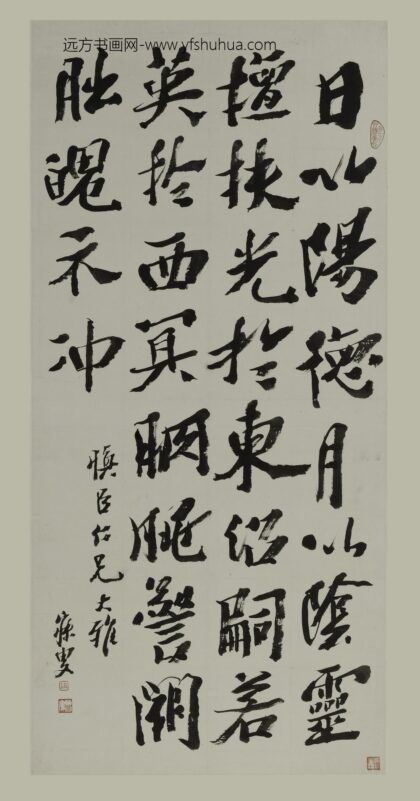 远方书画网-www.yfshuhua.com
日以陽德月以陰靈
擅扶光於東沼嗣若
英於西冥朒朓警闕
朏魄示冲
慎臣仁兄大雅
寐叟